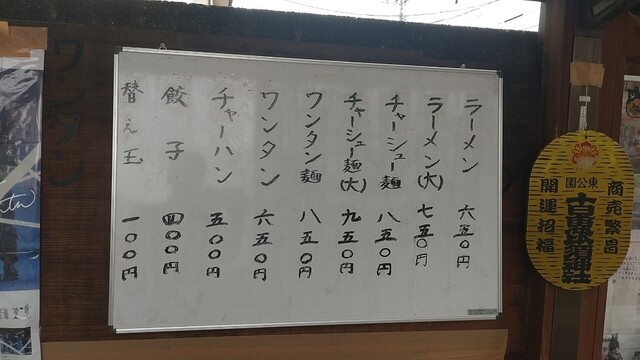 ラーメン 六五〇円
ラーメン(大) 七五〇円
チャーシュー麺 八五〇円
チャーシュー麺(大) 九五〇円
ワンタン麺 八五〇円
ワンタン 六五〇円
チャーハン 五〇〇円
餃子 四〇〇円
替え玉 一〇〇円
東公園
商売繁昌
開運招福
ワンタン